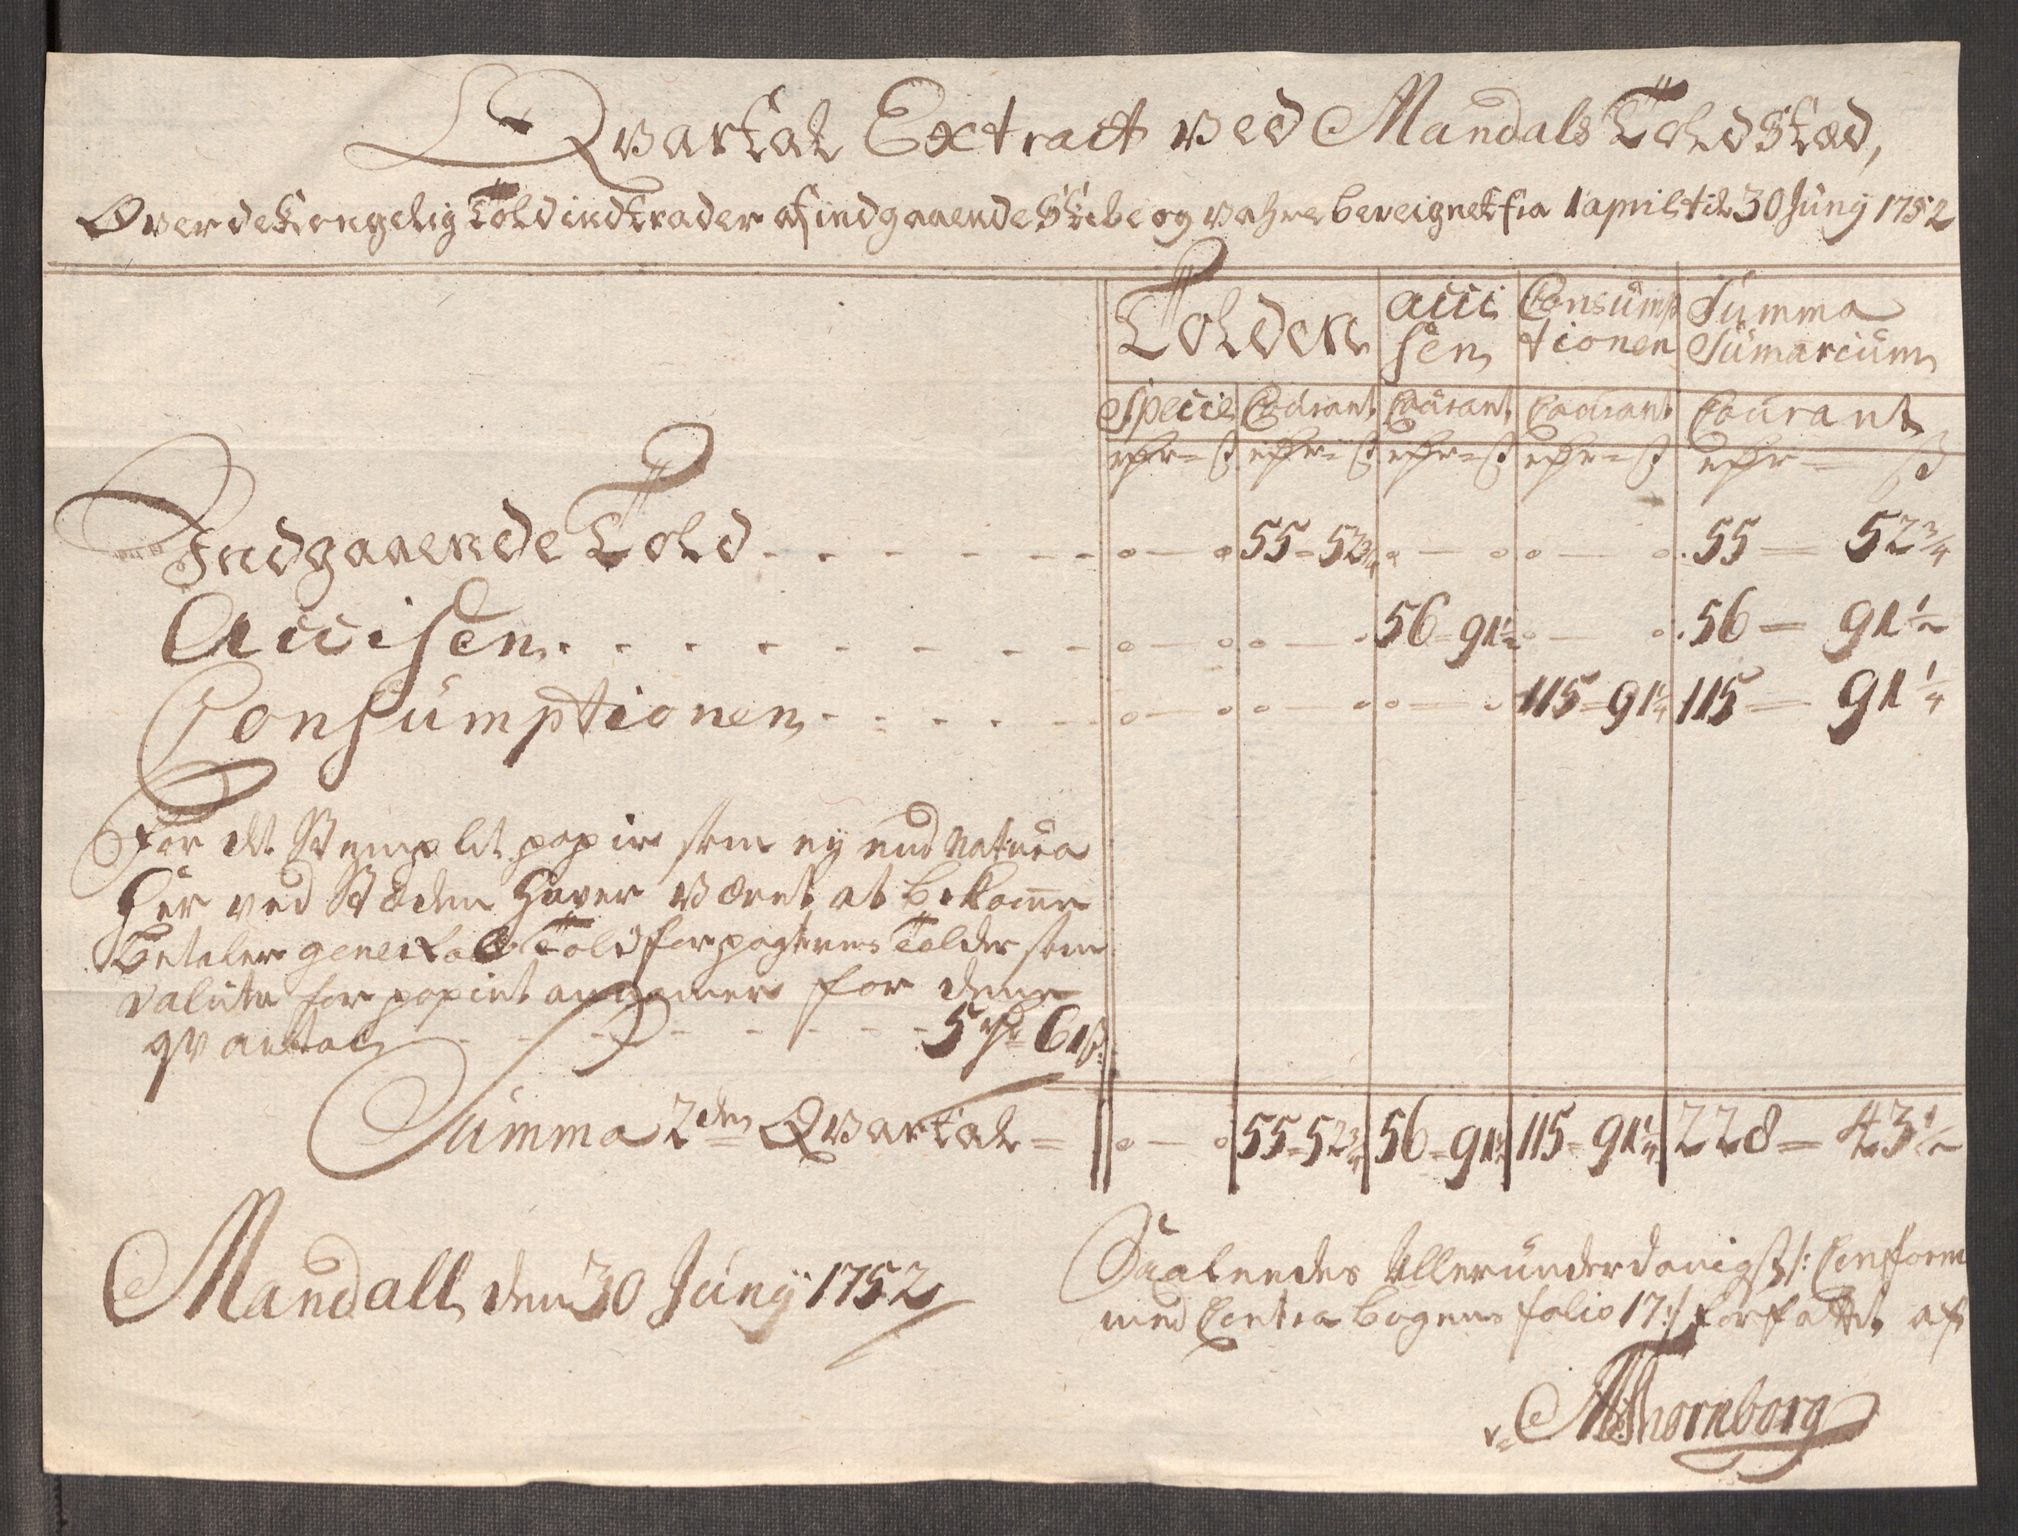 Qvartal Extract ved Mandals Toldstæd,
Over de Kongelig Told indtrader af indgaaende Skibe og vahre bereignet fra 1 april til 30 Juny 1752
Tolden acci Consump Summa
sen tionen Sumarium
Specie Courant Courant Courant Courant
rdr = ß rdr = ß rdr = ß rdr = ß rdr = ß
Indgaaende Told . . . . . . o — o 55 = 52 3/4 o — o o — o 55 — 52 3/4
Accisen . . . . . . o — o o — o 56 = 91 1/2 o — o 56 = 91 1/2
Consumptionen . . . . . o — o o — o o — o 115 = 91 1/4 115 — 91 1/4
For det Stemplet papir som ey udi Natura
her ved Stæden haver været at bekomme
betaler general Toldforpagternes Tolder som
valuta for papiret annamer for dene
qvartal - - - - - 5 rdr 61 ß
Summa 2den Qvartal = o — o 55 = 52 3/4 56 = 91 1/2 115 = 91 1/4 228 = 43 1/2
Mandall den 30 Juny 1752
Saaleedes Allerunderdanigst /: Conform
med Contra bogens folio 17 :/ forfattet af
Thornborg